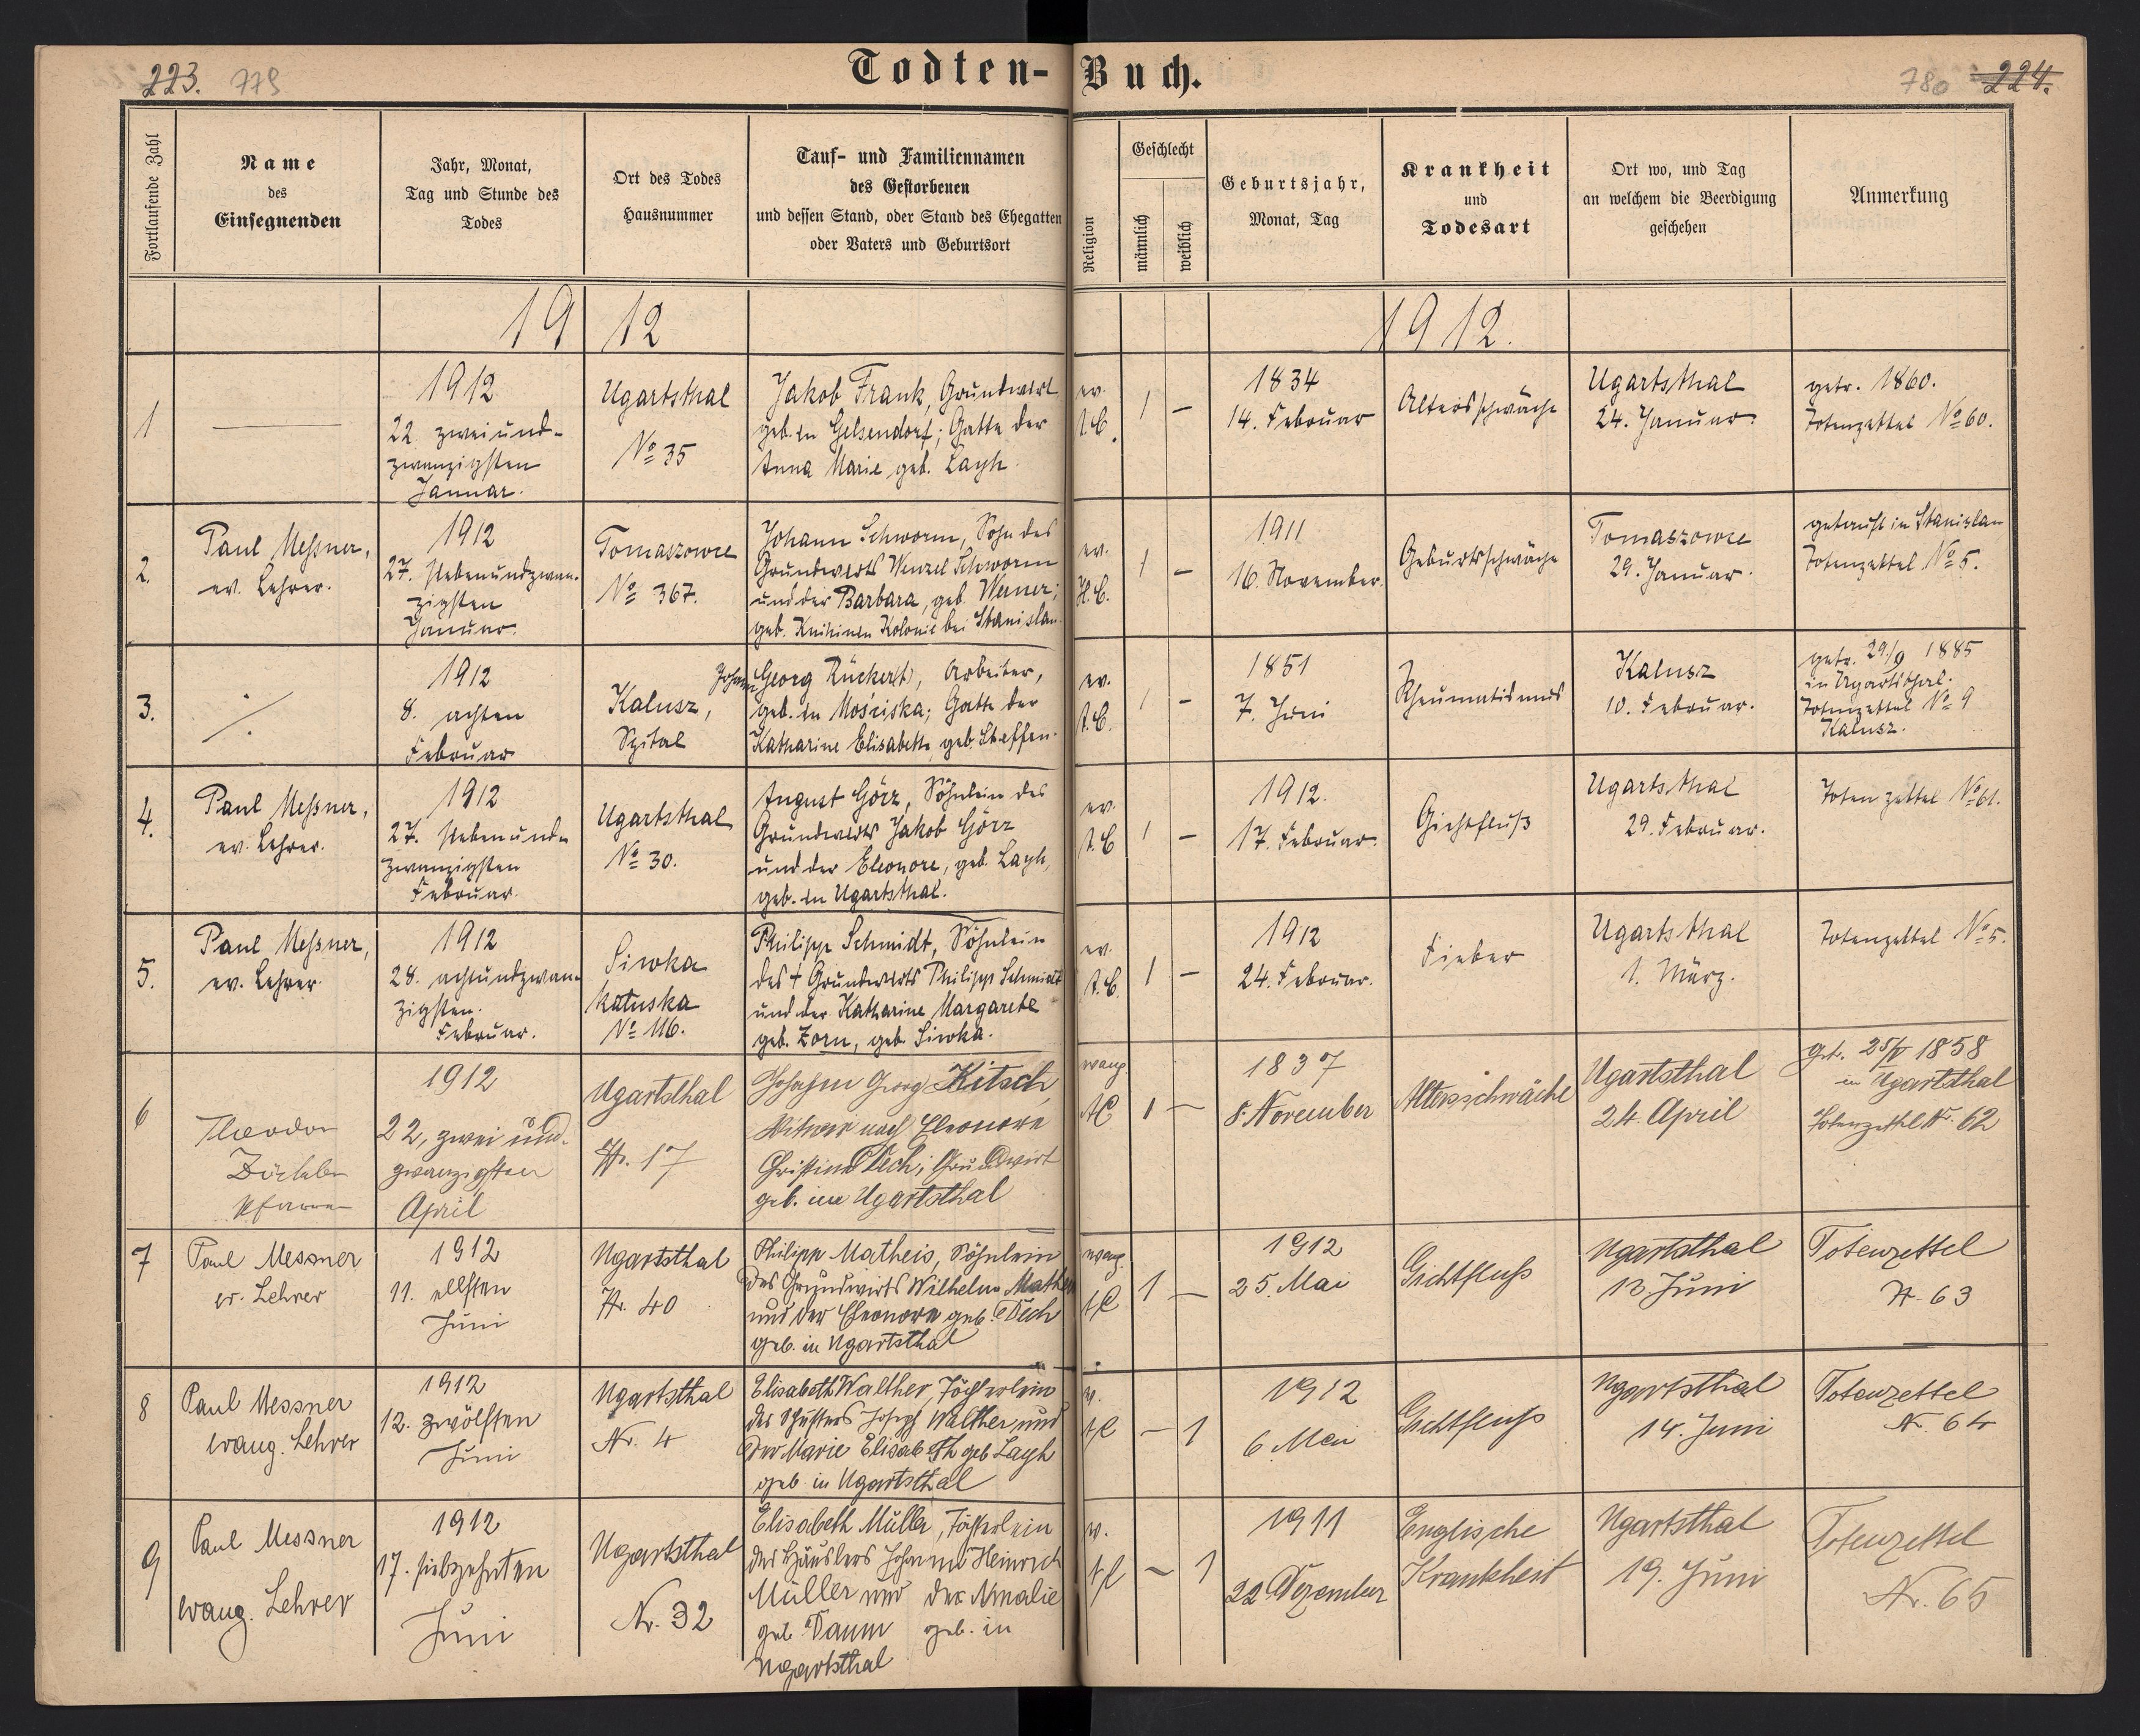 223. 779
Todten-Buch.
780 224.
Fortlaufende Zahl
Name
des
Einsegnenden
Jahr, Monat,
Tag und Stunde des
Todes
Ort des Todes
Hausnummer
Tauf- und Familiennamen
des Gestorbenen
und dessen Stand, oder Stand des Ehegatten
oder Vaters und Geburtsort
Religion
Geschlecht
männlich
weiblich
Geburtsjahr,
Monat, Tag
Krankheit
und
Todesart
Ort wo, und Tag
an welchem die Beerdigung
geschehen
Anmerkung
1912
1912.
1
1912
22 zweiund-
zwanzigsten
Januar.
Ugartsthal
No 35
Jakob Frank, Grundwirt
geb. in Gelsendorf; Gatte der
Anna Marie geb. Layh.
ev.
A.C.
1 –
1834
14. Februar
Altersschwäche
Ugartsthal
24. Januar.
getr. 1860.
Totenzettel No 60.
2.
Paul Meßner,
ev. Lehrer.
1912
27. siebenundzwan-
zigsten
Januar.
Tomaszowce
No 367.
Johann Schworm, Sohn des
Grundwirts Wenzel Schworm
und der Barbara, geb. Werner;
geb. Knihinin Kolonie bei Stanislau
ev.
H.C.
1 –
1911
16. November.
Geburtsschwäche
Tomaszowce
29. Januar.
getauft in Stanislau
Totenzettel No 5.
3.
1912
8. achten
Februar
Kalusz,
Spital
Johann Georg Rückert, Arbeiter,
geb. in Mościska; Gatte der
Katharine Elisabeth, geb. Steffen.
ev.
A.C.
1 –
1851
7. Juni
Rheumatismus
Kalusz
10. Februar.
getr. 29/9 1885
in Ugartsthal.
Totenzettel No 9
Kalusz.
4.
Paul Meßner,
ev. Lehrer.
1912
27. siebenund-
zwanzigsten
Februar.
Ugartsthal
No 30.
August Görz, Söhnlein des
Grundwirts Jakob Görz
und der Eleonore, geb. Layh,
geb. in Ugartsthal.
ev.
A.C
1 –
1912.
17. Februar.
Gichtfluß
Ugartsthal
29. Februar.
Totenzettel No 61.
5.
Paul Meßner,
ev. Lehrer.
1912
28. achtundzwan-
zigsten.
Februar.
Siwka
kałuska
No 116.
Philipp Schmidt, Söhnlein
des † Grundwirts Philipp Schmidt
und der Katharine Margarete
geb. Zorn, geb. Siwka.
ev.
A.C.
1 –
1912
24. Februar.
Fieber
Ugartsthal
1. März.
Totenzettel No 5.
6
Theodor
Pfarrer
1912
22, zwei und-
zwanzigsten
April
Ugartsthal
Nr. 17
Johann Georg Kitsch,
Witwer nach Eleonore
Christine Dech; Grundwirt
geb. in Ugartsthal
evang.
AC
1 –
1837
8. November
Altersschwäche
Ugartsthal
24. April
getr. 25/V 1858
in Ugartsthal
Totenzettel N. 62
7
Paul Messner
ev. Lehrer
1912
11. elften
Juni
Ugartsthal
Nr. 40
Philipp Matheis, Söhnlein
des Grundwirts Wilhelm Matheis
und der Eleonore geb. Dech
geb. in Ugartsthal
evang.
AC
1 –
1912
25. Mai
Gichtfluss
Ugartsthal
13. Juni
Totenzettel
N. 63
8
Paul Messner
evang. Lehrer
1912
12. zwölften
Juni
Ugartsthal
Nr. 4
Elisabeth Walther, Töchterlein
des Schusters Joseph Walther und
der Marie Elisabeth geb Layh
geb in Ugartsthal
ev.
AC
– 1
1912
6. Mai
Gichtfluss
Ugartsthal
14. Juni
Totenzettel
N. 64
9
Paul Messner
evang. Lehrer
1912
17. siebzehnten
Juni
Ugartsthal
Nr. 32
Elisabeth Müller, Töchterlein
des Häuslers Johann Heinrich
Müller und der Amalie
geb. Daum geb. in
Ugartsthal
ev.
AC
– 1
1911
22 Dezember
Englische
Krankheit
Ugartsthal
19. Juni
Totenzettel
Nr. 65